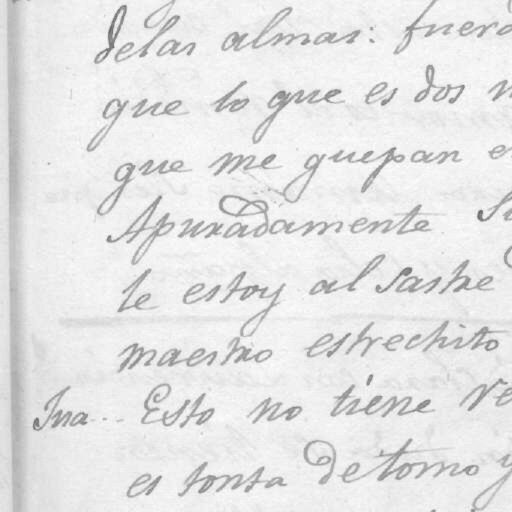 delas almas: fuera
que lo que es dos
que me quepan en
Apuradamente
le estoy al sastre
maestro estrechito
Jua.. Esto no tiene re
es tonta de tomo y